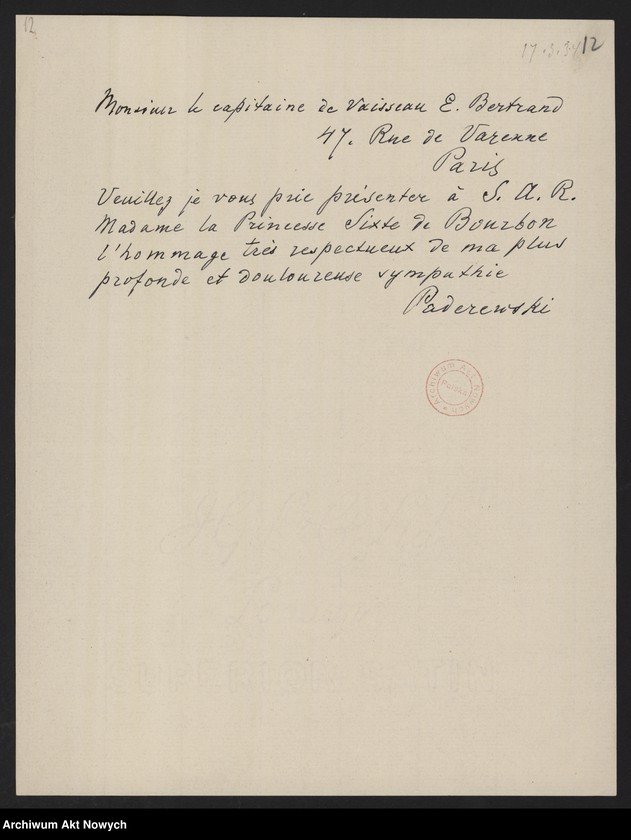 12
17.3.34 12
Monsieur le capitaine de vaisseau E. Bertrand
47, Rue de Varenne
Paris
Veuillez je vous prie présenter à S. A. R.
Madame la Princesse Sixte de Bourbon
l'hommage très respectueux de ma plus
profonde et douloureuse sympathie
Paderewski
Archiwum Akt Nowych
Archiwum Akt Nowych